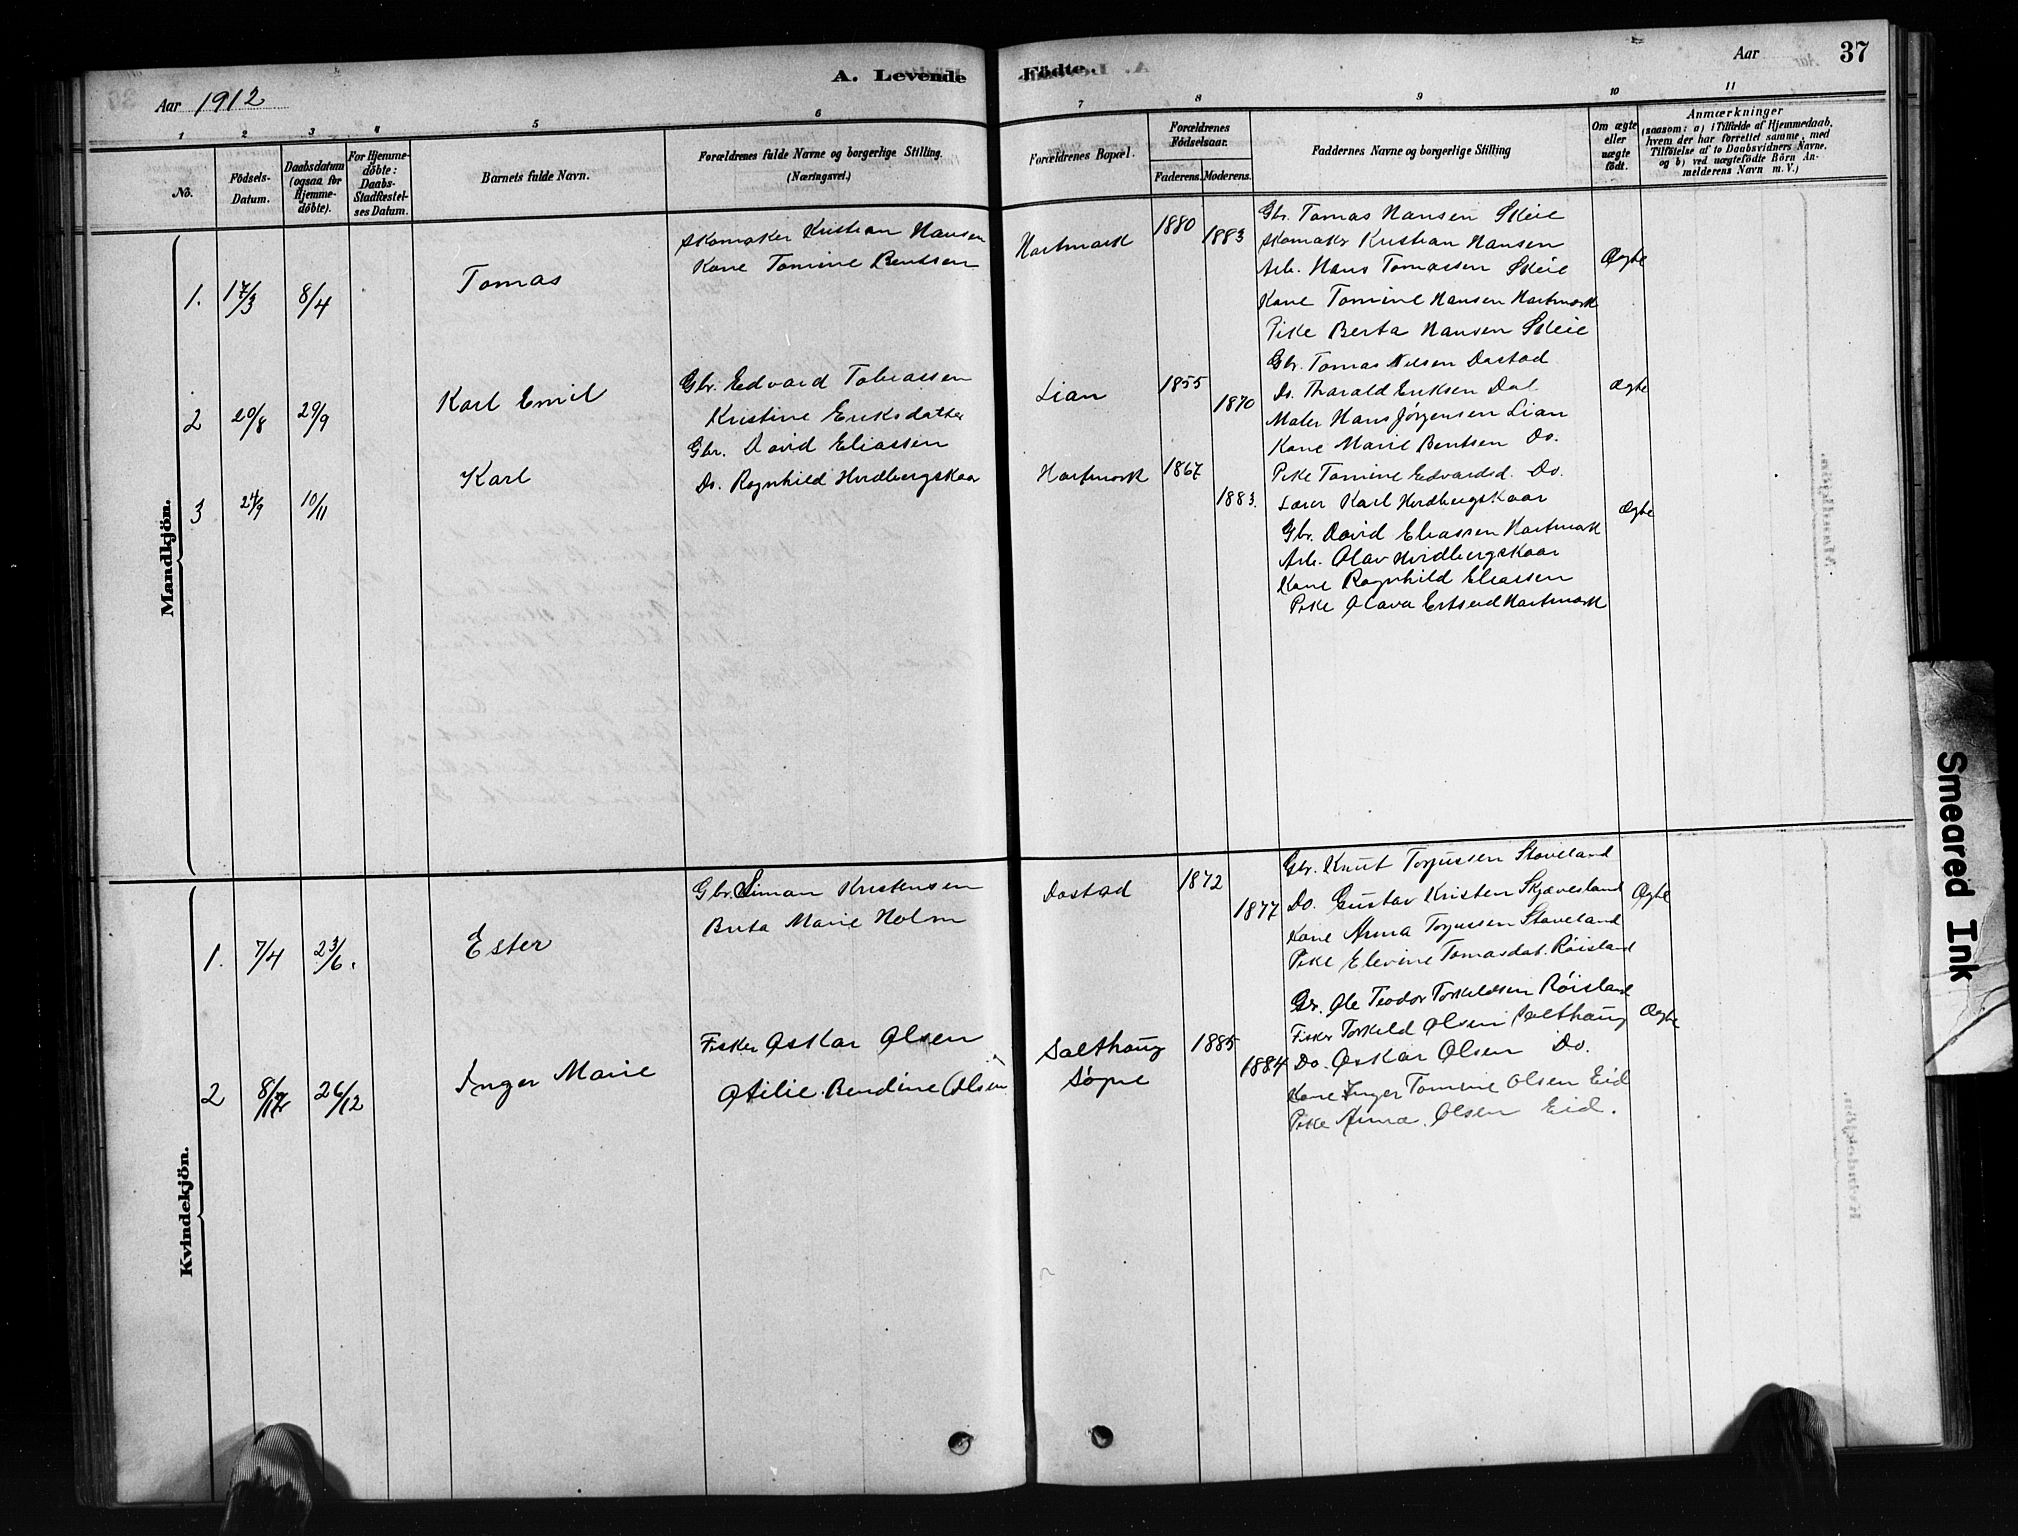 A. Levende Fødte.
Aar 37
Aar 1912
1 2 3 4 5 6 7 8 9 10 11
No.
Födsels-Datum.
Daabsdatum (ogsaa for Hjemmedöbte).
For Hjemmedöbte: Daabs-Stadfæstelses Datum.
Barnets fulde Navn.
Forældrenes fulde Navne og borgerlige Stilling. (Næringsvei.)
Forældrenes Bopæl.
Forældrenes Födselsaar.
Faderens. Moderens.
Faddernes Navne og borgerlige Stilling
Om ægte eller uægte födt.
Anmærkninger
(saasom: a) i Tilfælde af Hjemmedaab, hvem der har forrettet samme, med Tilföielse af to Daabsvidners Navne, og b) ved uægtefödte Börn Anmelderens Navn m. V.)
Mandkjön.
1. 17/3 8/4 Tomas
Skomaker Kristian Hansen
Kone Tomine Bentsen
Hartmark 1880 1883
Gbr. Tomas Hansen Skeie
Skomaker Kristian Hansen
Arb. Hans Tomassen Skeie
Kone Tomine Hansen Hartmark
Pike Berta Hansen Skeie
Ægte
2 20/8 29/9 Karl Emil
Gbr. Edvard Tobiassen
Kristine Eriksdatter
Lian 1855 1870
Gbr. Tomas Nilsen Dastad
Do. Tharald Eriksen Dal
Maler Hans Jørgensen Lian
Kone Marie Bentsen Do.
Pike Tomine Edvardsd. Do.
Ægte
3 24/9 10/11 Karl
Gbr. David Eliassen
Do. Ragnhild Hvidbergskaar
Hartmark 1867 1883.
Lærer Karl Hvidbergskaar
Gbr. David Eliassen Hartmark
Arb. Olav Hvidbergskaar
Kone Ragnhild Eliassen
Pike Olava Ertseid Hartmark
Ægte
Kvindekjön.
1. 7/4 23/6. Ester
Gbr. Simon Kristensen
Berta Marie Holm
Dastad 1872 1877
Gbr. Knut Torjussen Staveland
Do. Gustav Kristen Skjævesland
Kone Anna Torjussen Staveland
Pike Elevine Tomasdat. Røisland
Ægte
2 26/12 Inger Marie
Fisker Oskar Olsen
Otilie Bendine Olsen
Salthaug Søgne 1885 1884
Gbr. Ole Teodor Torkeldsen Røisland
Fisker Torkeld Olsen Salthaug
Do. Oskar Olsen Do.
Kone Inger Tomine Olsen Eid
Pike Anna Olsen Eid.
Ægte
Smeared Ink